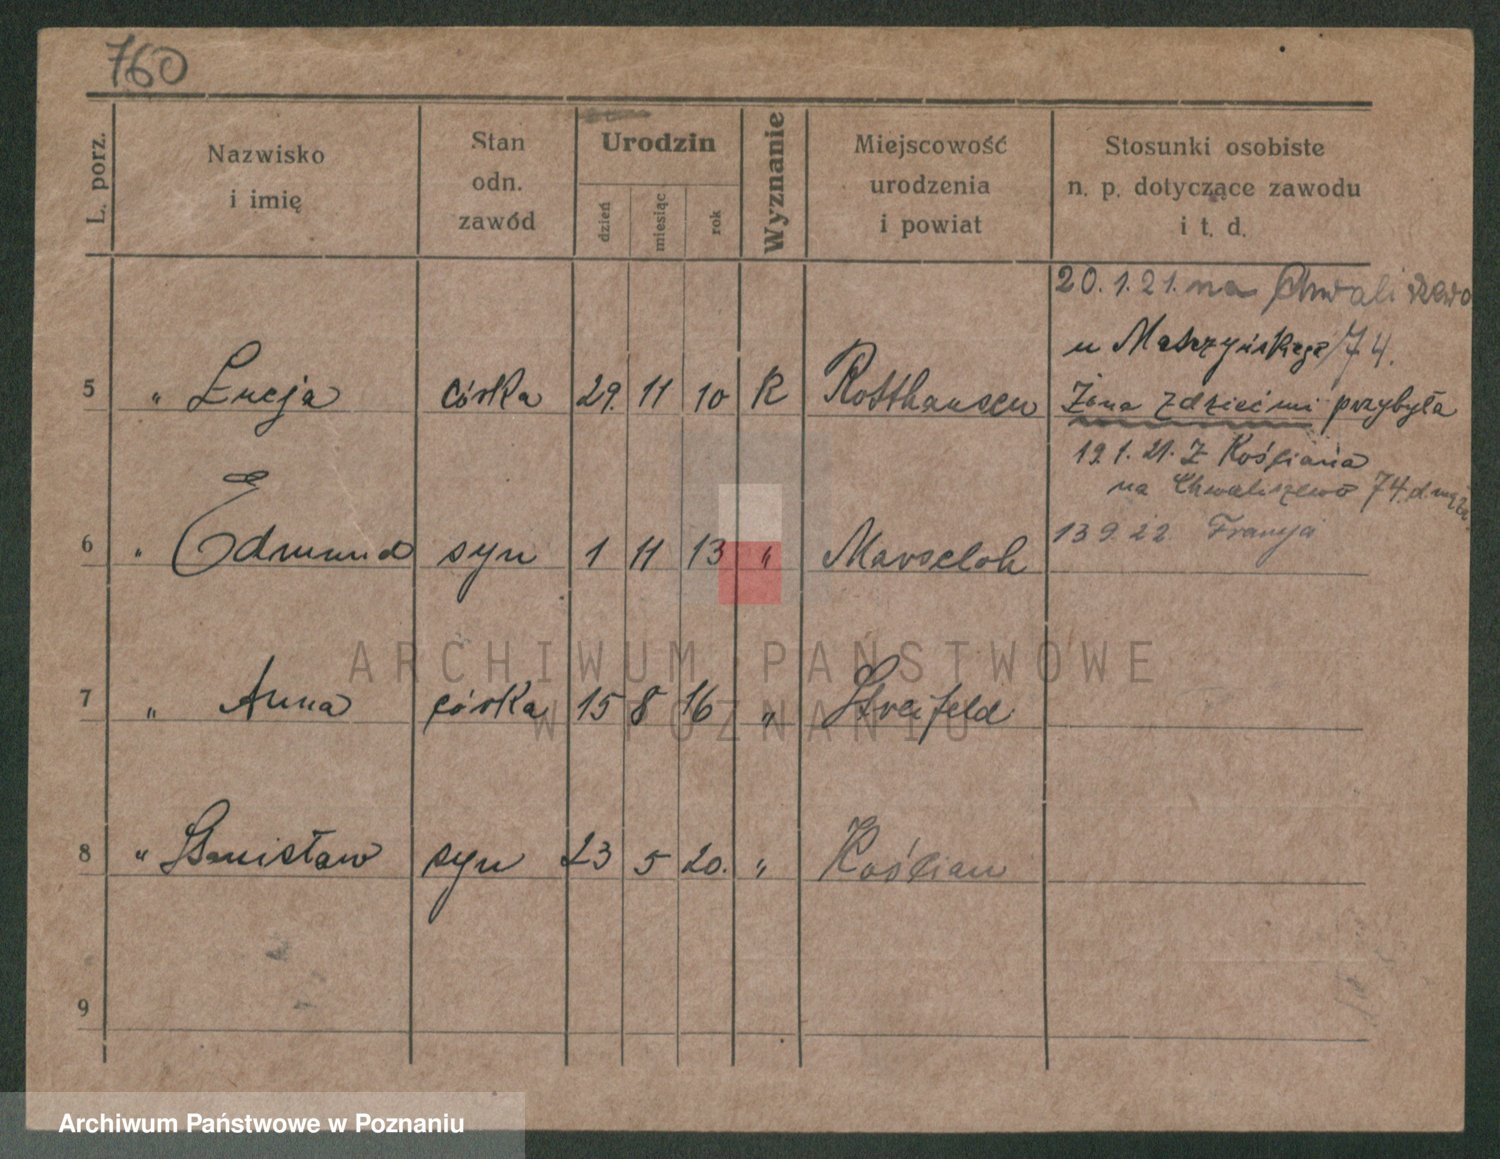 760
L. porz.
Nazwisko
i imię
Stan
odn.
zawód
Urodzin
dzień
miesiąc
rok
Wyznanie
Miejscowość
urodzenia
i powiat
Stosunki osobiste
n. p. dotyczące zawodu
i t. d.
20.1.21. na Chwaliszewo
u Maszyńskiego/74.
5 " Łucja córka 29. 11 10 R Rotthausen
Żona z dziećmi przybyła
19.1.21. z Kościana
na Chwaliszewo 74. d. męża
13 9. 22. Francja
6 " Edmund syn 1 11 13 " Marxeloh
7 " Anna córka 15 8 16 " Streifeld
8 " Stanisław syn 23 5 20. " Kościan
9
ARCHIWUM PAŃSTWOWE
W POZNANIU
Archiwum Państwowe w Poznaniu